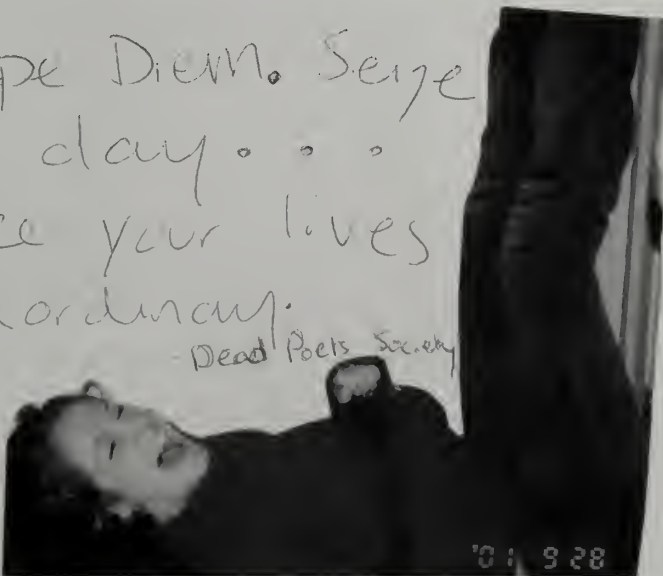 pe Diem. Seize
day...
ce your lives
ordinary.
- Dead Poets Society
'01 9 28